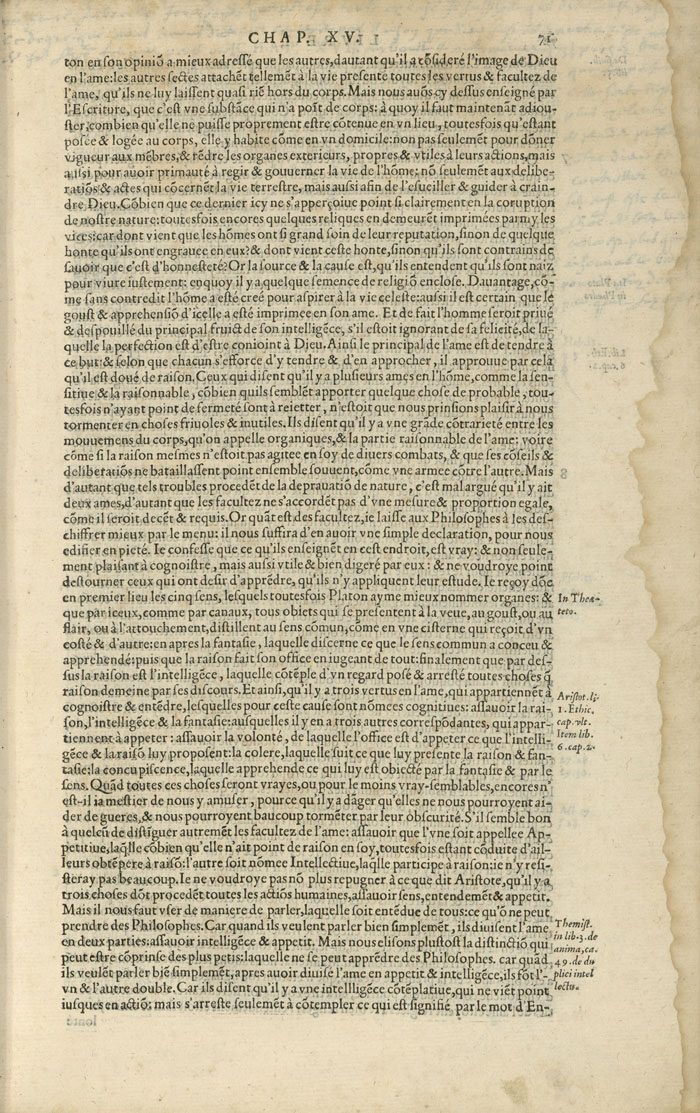 CHAP. XV. 71
ton en son opiniõ a mieux adressé que les autres, dautant qu'il a cõsideré l'image de Dieu
en l'ame: les autres sectes attachẽt tellemẽt à la vie presente toutes les vertus & facultez de
l'ame, qu'ils ne luy laissent quasi riẽ hors du corps. Mais nous auõs cy dessus enseigné par
l'Escriture, que c'est vne substãce qui n'a poĩt de corps: à quoy il faut maintenãt adiou-
ster, combien qu'elle ne puisse proprement estre cõtenue en vn lieu, toutesfois qu'estant
posée & logée au corps, elle y habite cõme en vn domicile: non pas seulemẽt pour dõner
vigueur aux mẽbres, & rẽdre les organes exterieurs, propres & vtiles à leurs actiõs, mais
aussi pour auoir primauté à regir & gouuerner la vie de l'hõme: nõ seulemẽt aux delibe-
ratiõs & actes qui cõcernẽt la vie terrestre, mais aussi afin de l'esueiller & guider à crain-
dre Dieu. Cõbien que ce dernier icy ne s'apperçoiue point si clairement en la coruption
de nostre nature: toutesfois encores quelques reliques en demeurẽt imprimées parmy les
vices: car dont vient que les hõmes ont si grand soin de leur reputation, sinon de quelque
honte qu'ils ont engrauee en eux? & dont vient ceste honte, sinon qu'ils sont contrains de
sauoir que c'est d'honnesteté? Or la source & la cause est, qu'ils entendent qu'ils sont naiz
pour viure iustement: en quoy il y a quelque semence de religiõ enclose. Dauantage, cõ-
me sans contredit l'hõme a esté creé pour aspirer à la vie celeste: aussi il est certain que le
goust & apprehensiõ d'icelle a esté imprimee en son ame. Et de fait l'homme seroit priué
& despouillé du principal fruict de son intelligẽce, s'il estoit ignorant de sa felicité, de la-
quelle la perfection est d'estre conioint à Dieu. Ainsi le principal de l'ame est de tendre à
ce but: & selon que chacun s'efforce d'y tendre & d'en approcher, il approuue par cela
qu'il est doué de raison. Ceux qui disent qu'il y a plusieurs ames en l'hõme, comme la sen-
sitiue & la raisonnable, cõbien quils semblẽt apporter quelque chose de probable, tou-
tesfois n'ayant point de fermeté sont à reietter, n'estoit que nous prinsions plaisir à nous
tormenter en choses friuoles & inutiles. Ils disent qu'il y a vne grãde cõtrarieté entre les
mouuemens du corps, qu'on appelle organiques, & la partie raisonnable de l'ame: voire
cõme si la raison mesmes n'estoit pas agitee en soy de diuers combats, & que ses cõseils &
deliberatiõs ne bataillassent point ensemble souuent, cõme vne armee cõtre l'autre. Mais
d'autant que tels troubles procedẽt de la deprauatiõ de nature, c'est mal argué qu'il y ait
deux ames, d'autant que les facultez ne s'accordẽt pas d'vne mesure & proportion egale,
cõme il seroit decẽt & requis. Or quãt est des facultez, ie laisse aux Philosophes à les des-
chiffrer mieux par le menu: il nous suffira d'en auoir vne simple declaration, pour nous
edifier en pieté. Ie confesse que ce qu'ils enseignẽt en cest endroit, est vray: & non seule-
ment plaisant à cognoistre, mais aussi vtile & bien digeré par eux: & ne voudroye point
destourner ceux qui ont desir d'apprẽdre, qu'ils n'y appliquent leur estude. Ie reçoy dõc
en premier lieu les cinq sens, lesquels toutesfois Platon ayme mieux nommer organes: &
In Thea-
que par iceux, comme par canaux, tous obiets qui se presentent à la veue, au goust, ou au
teto.
flair, ou à l'attouchement, distillent au sens cõmun, cõme en vne cisterne qui reçoit d'vn
costé & d'autre: en apres la fantasie, laquelle discerne ce que le sens commun a conceu &
apprehendé: puis que la raison fait son office en iugeant de tout: finalement que par des-
sus la raison est l'intelligẽce, laquelle cõtẽple d'vn regard posé & arresté toutes choses q̃
raison demeine par ses discours. Et ainsi, qu'il y a trois vertus en l'ame, qui appartiennẽt à
Aristot. li.
cognoistre & entẽdre, lesquelles pour ceste cause sont nõmees cognitiues: assauoir la rai-
1. Ethic.
son, l'intelligẽce & la fantasie: ausquelles il y en a trois autres correspõdantes, qui appar-
cap. vlt.
tiennent à appeter: assauoir la volonté, de laquelle l'office est d'appeter ce que l'intelli-
Item lib.
gẽce & la raisõ luy proposent: la colere, laquelle suit ce que luy presente la raison & fan-
6. cap. 2.
tasie: la concupiscence, laquelle apprehende ce qui luy est obiecté par la fantasie & par le
sens. Quãd toutes ces choses seront vrayes, ou pour le moins vray-semblables, encores n'
est-il ia mestier de nous y amuser, pource qu'il y a dãger qu'elles ne nous pourroyent ai-
der de gueres, & nous pourroyent beaucoup tormẽter par leur obscurité. S'il semble bon
à quelcũ de distĩguer autremẽt les facultez de l'ame: assauoir que l'vne soit appellee Ap-
petitiue, laq̃lle cõbien qu'elle n'ait point de raison en soy, toutesfois estant cõduite d'ail-
leurs obtẽpere à raisõ: l'autre soit nõmee Intellectiue, laq̃lle participe à raison: ie n'y resi-
steray pas beaucoup. Ie ne voudroye pas nõ plus repugner à ce que dit Aristote, qu'il y a
trois choses dõt procedẽt toutes les actiõs humaines, assauoir sens, entendemẽt & appetit.
Mais il nous faut vser de maniere de parler, laquelle soit entẽdue de tous: ce qu'õ ne peut
prendre des Philosophes. Car quand ils veulent parler bien simplemẽt, ils diuisent l'ame
Themist.
en deux parties: assauoir intelligẽce & appetit. Mais nous elisons plustost la distinctiõ qui
in lib. 3. de
peut estre cõprinse des plus petis: laquelle ne se peut apprẽdre des Philosophes. car quãd
anima, ca.
49. de du
ils veulẽt parler bjẽ simplemẽt, apres auoir diuisé l'ame en appetit & intelligẽce, ils fõt l'-
plici intel
vn & l'autre double. Car ils disent qu'il y a vne intellligẽce cõtẽplatiue, qui ne viẽt point
lectu.
iusques en actiõ: mais s'arreste seulemẽt à cõtempler ce qui est signifié par le mot d'En-